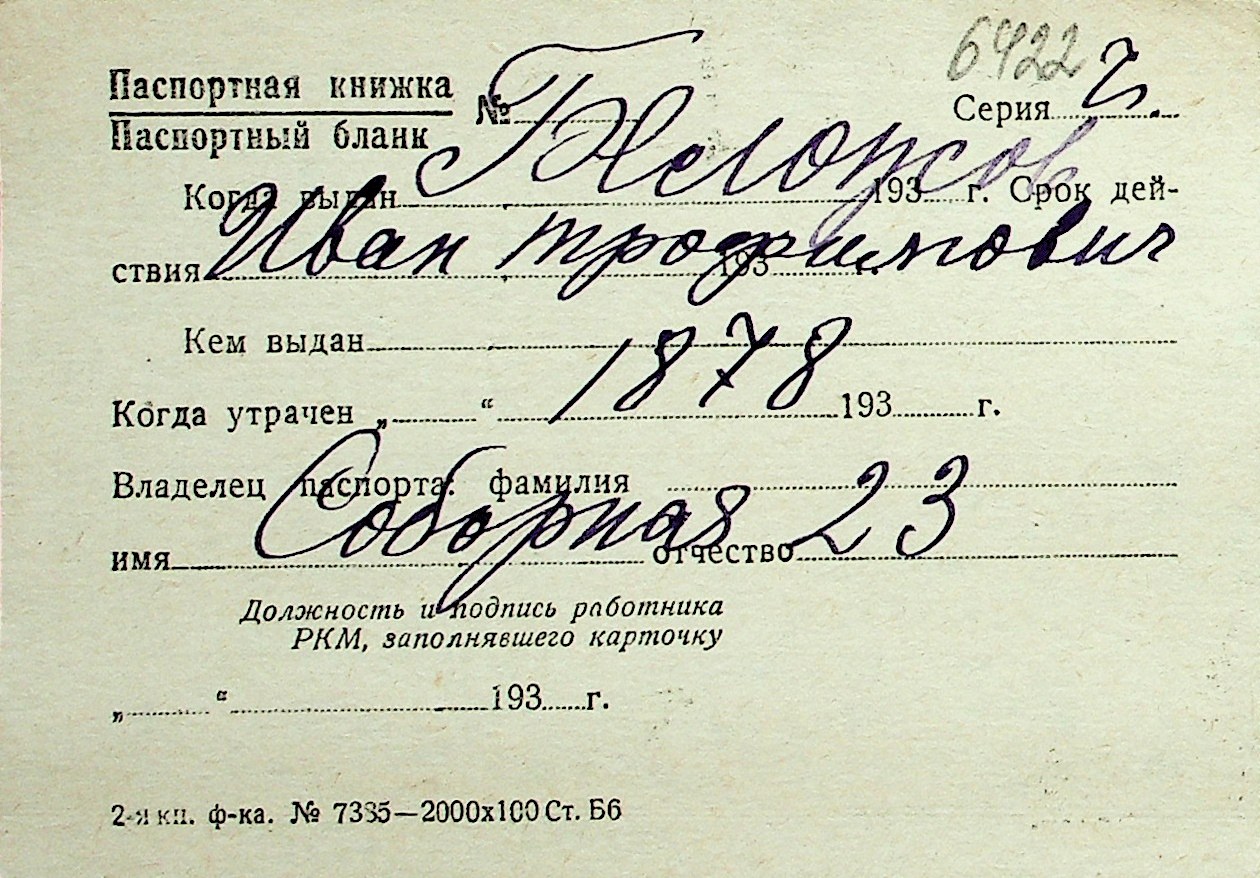 6422 г.
Паспортная книжка
Паспортный бланк № Серия
Когда выдан 193 г. Срок дей-
ствия 193 г.
Иван Трофимович
Кем выдан
1878
Когда утрачен „ “ 193 г.
Владелец паспорта: фамилия
Соборная 23
имя отчество
Должность и подпись работника
РКМ, заполнявшего карточку
„ “ 193 г.
2-я кн. ф-ка. № 7385—2000х100 Ст. Б6